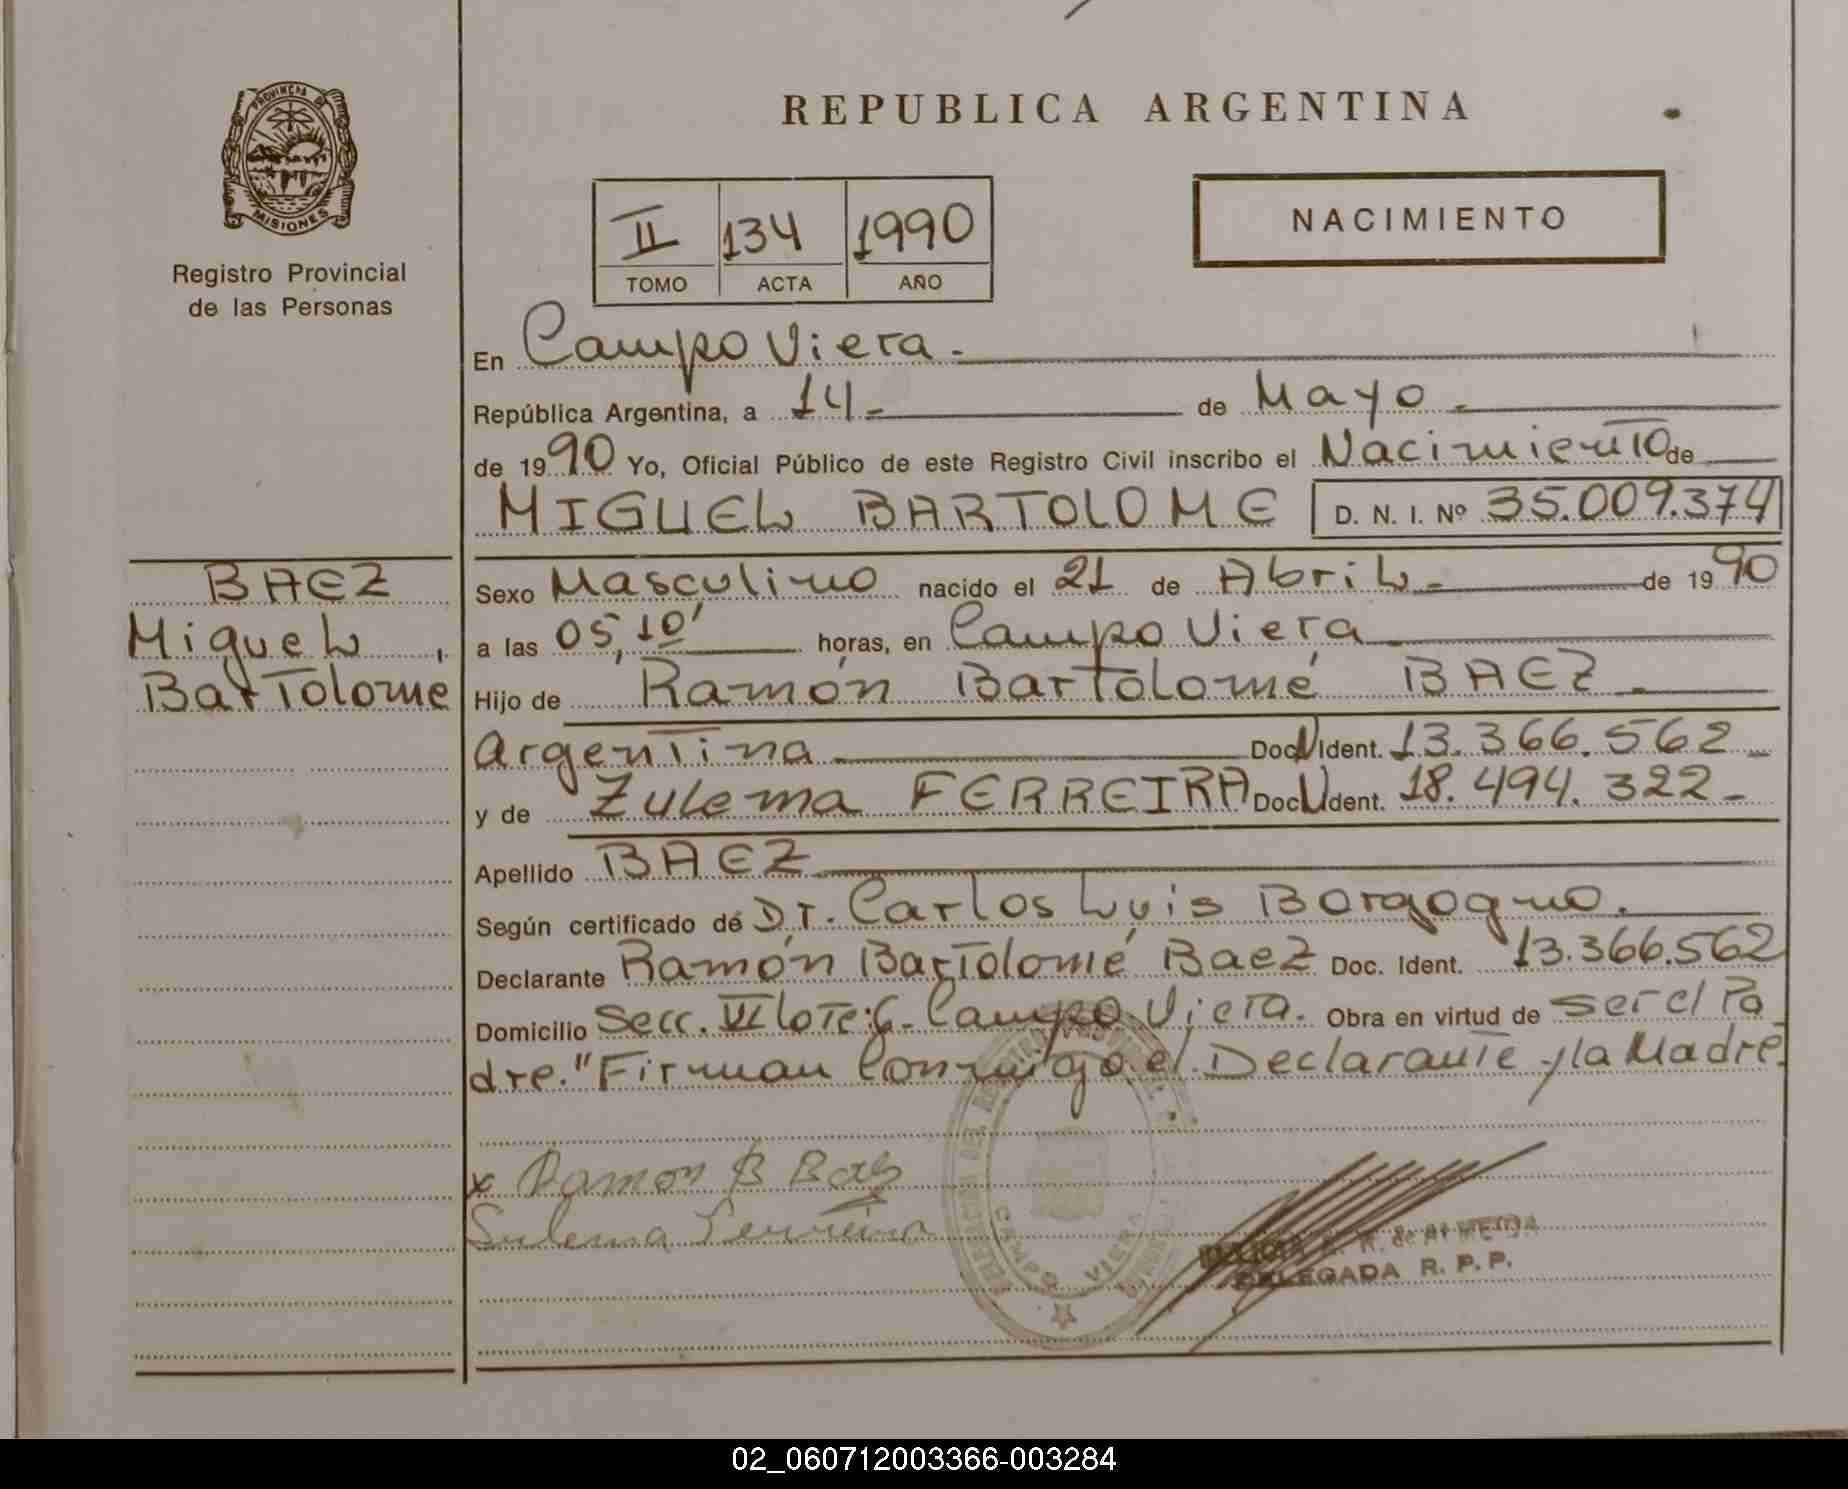 PROVINCIA DE
MISIONES
Registro Provincial
de las Personas
REPUBLICA ARGENTINA
II 134 1990
TOMO ACTA AÑO
NACIMIENTO
En Campo Viera.
República Argentina, a 14 de Mayo
de 1990 Yo, Oficial Público de este Registro Civil inscribo el Nacimiento de
MIGUEL BARTOLOME D. N. I. Nº 35.009.374
BAEZ
Miguel,
Bartolome
Sexo Masculino nacido el 21 de Abril de 1990
a las 05,10' horas, en Campo Viera
Hijo de Ramón Bartolomé BAEZ
Argentina Doc. N Ident. 13.366.562
y de Zulema FERREIRA Doc. Ident. 18.494.322
Apellido BAEZ
Según certificado de Dr. Carlos Luis Borgogno.
Declarante Ramón Bartolomé Baez Doc. Ident. 13.366.562
Domicilio Secc. VI lote:6. Campo Viera. Obra en virtud de ser el Pa
dre. "Firman Conmigo el Declarante y la Madre.
x Ramon B Baez
Sulema Ferreira
CAMPO VIERA
DELEGADA R. P. P.
02_060712003366-003284